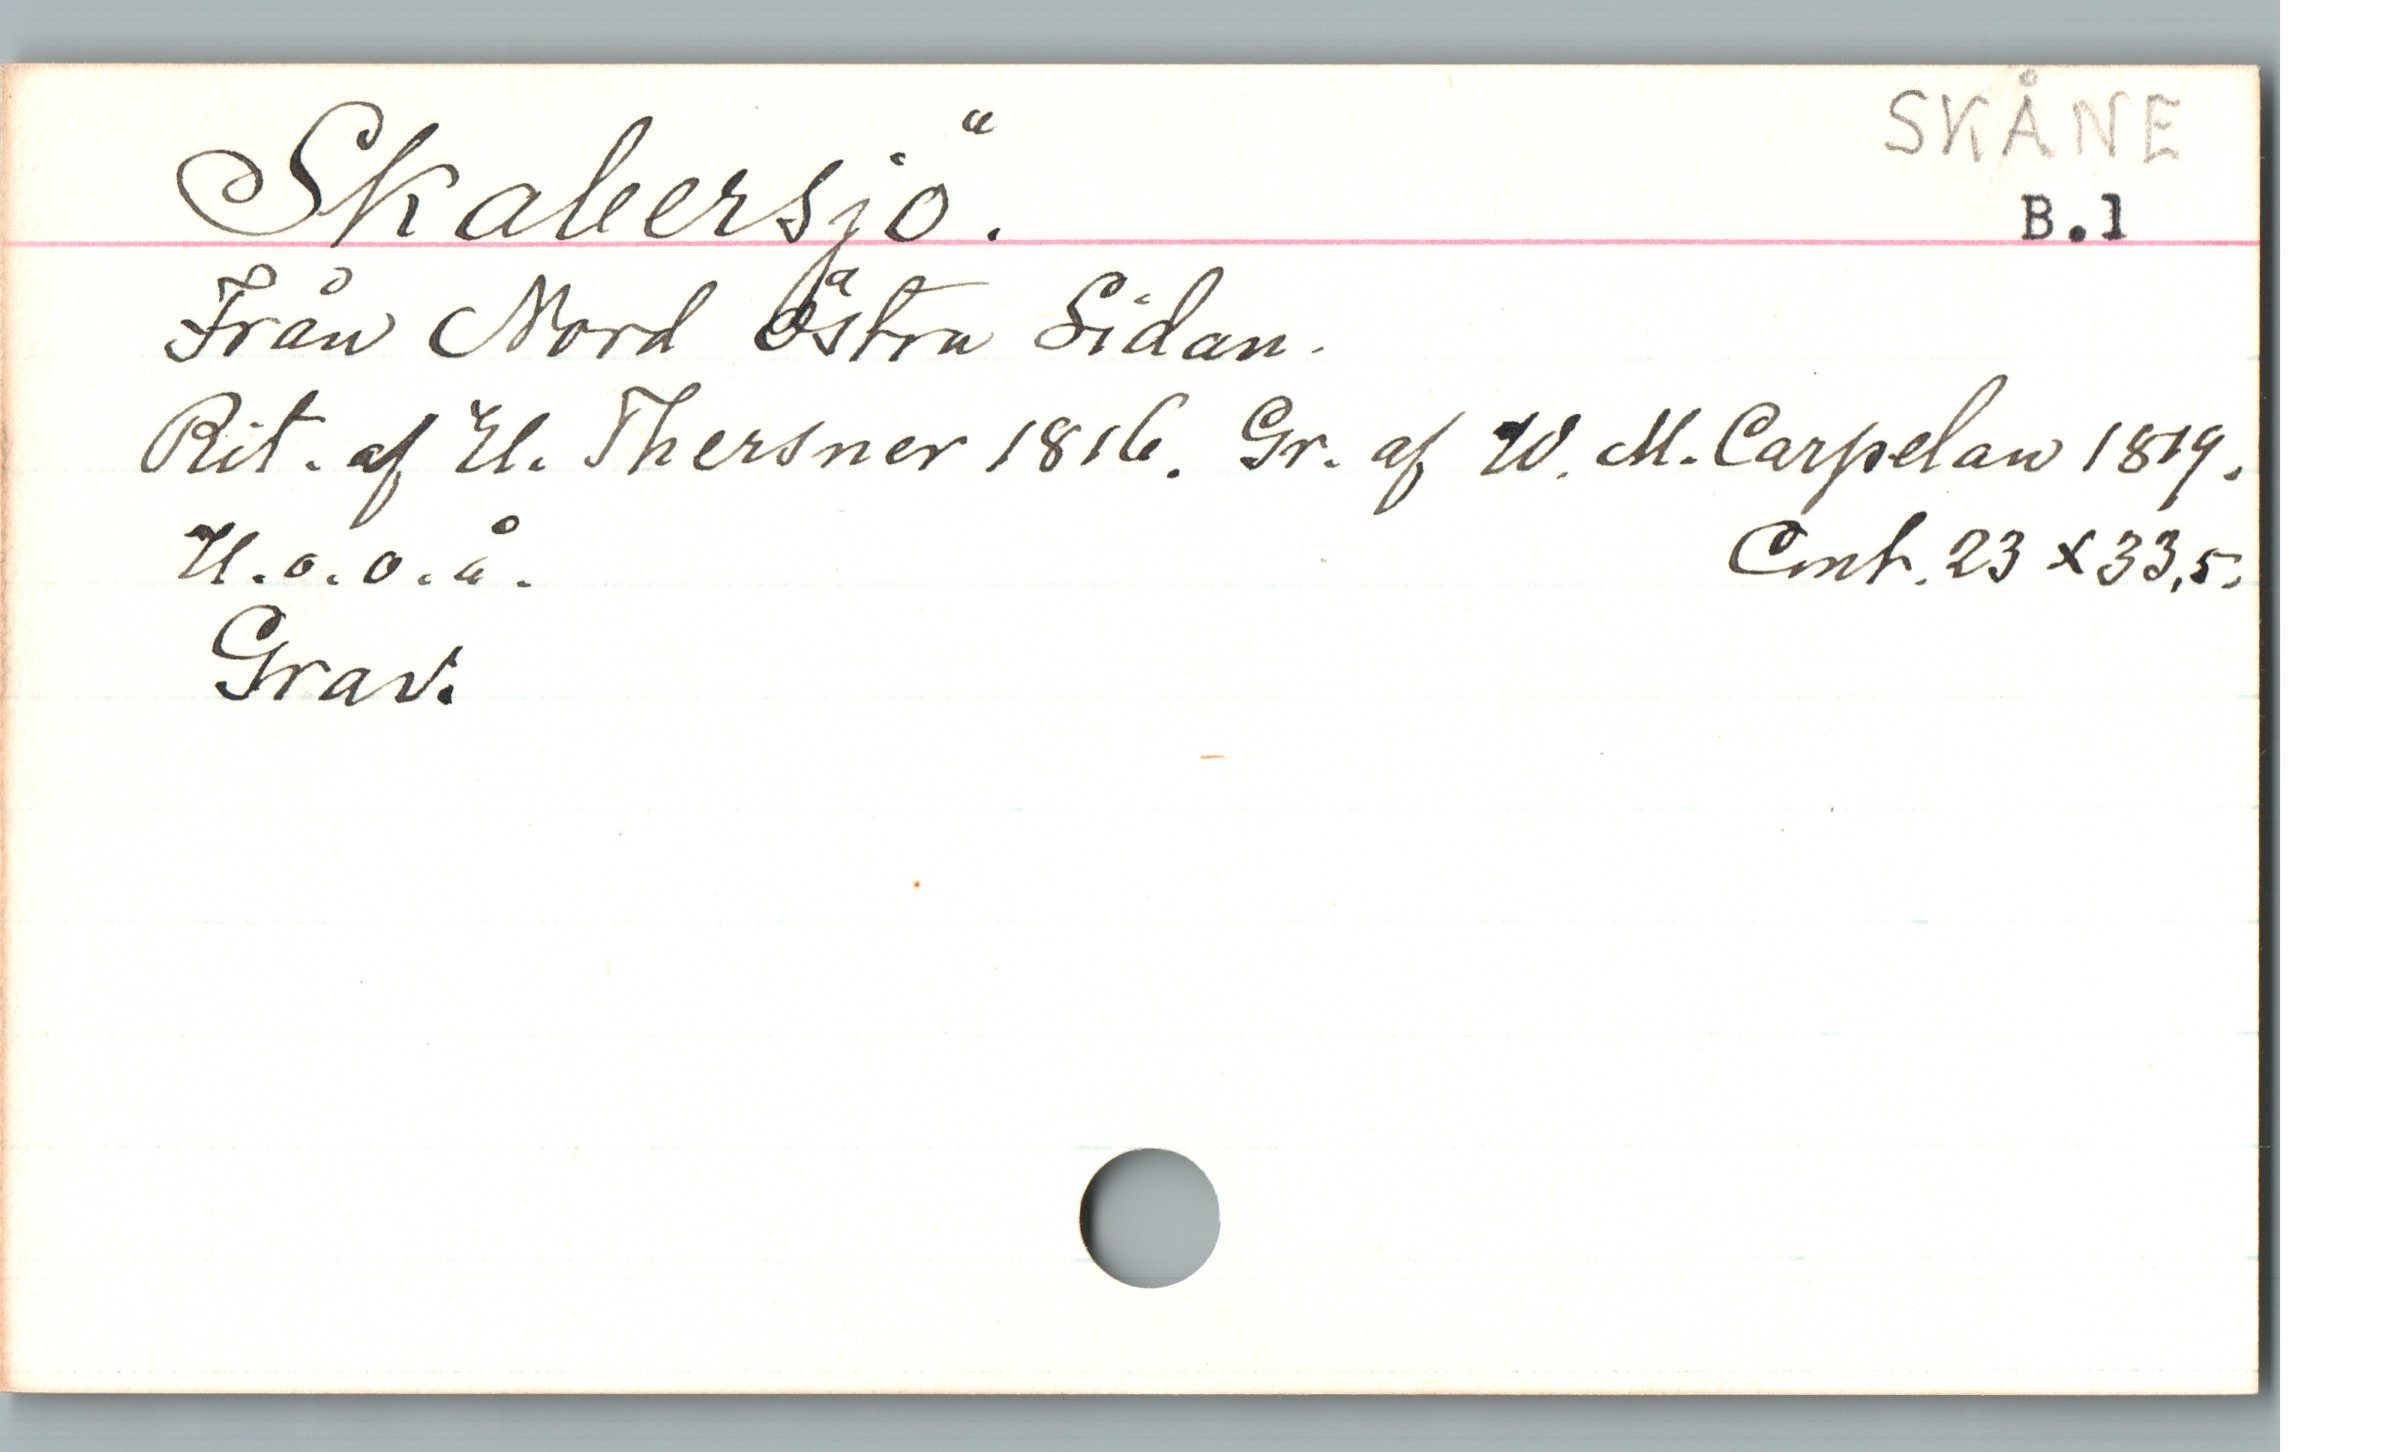 SKÅNE
Skabersjö.
B.1
Från Nord Östra Sidan.
Rit. af U. Thersner 1816. Gr. af W. M. Carpelan 1819.
U.o.o.å.
Cmt. 23 x 33,5.
Grav.